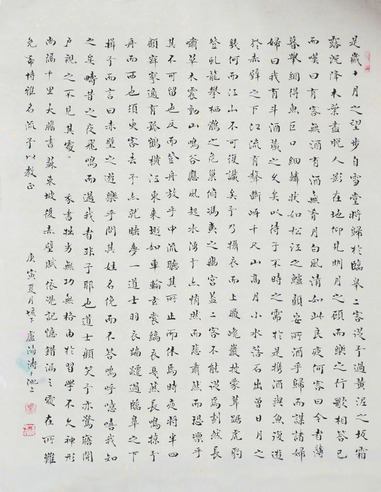 是歲十月之望步自雪堂將歸於臨皋二客從予過黃泥之坂霜
露既降木葉盡脫人影在地仰見明月顧而樂之行歌相答已
而嘆曰有客無酒有酒無肴月白風清如此良夜何客曰今者薄
暮舉網得魚巨口細鱗狀如松江之鱸顧安所得酒乎歸而謀諸婦
婦曰我有斗酒藏之久矣以待子不時之需於是攜酒與魚復遊
於赤壁之下江流有聲斷岸千尺山高月小水落石出曾日月之
幾何而江山不可復識矣予乃攝衣而上履巉巖披蒙茸踞虎豹
登虬龍攀栖鶻之危巢俯馮夷之幽宮蓋二客不能從焉劃然長
嘯草木震動山鳴谷應風起水涌予亦悄然而悲肅然而恐凜乎
其不可留也反而登舟放乎中流聽其所止而休焉時夜將半四
顧寂寥適有孤鶴橫江東來翅如車輪玄裳縞衣戛然長鳴掠予
舟而西也須臾客去予亦就睡夢一道士羽衣蹁躚過臨皋之下
揖予而言曰赤壁之遊樂乎問其姓名俛而不答嗚呼噫嘻我知
之矣疇昔之夜飛鳴而過我者非子耶也道士顧笑予亦驚寤開
戶視之不見其處 書拙劣無功無格由於習學不久神形
尚隔千里大膽書蘇東坡後赤壁賦依憑記憶錯漏之處在所難
免希博雅名流予以教正 庚寅夏月